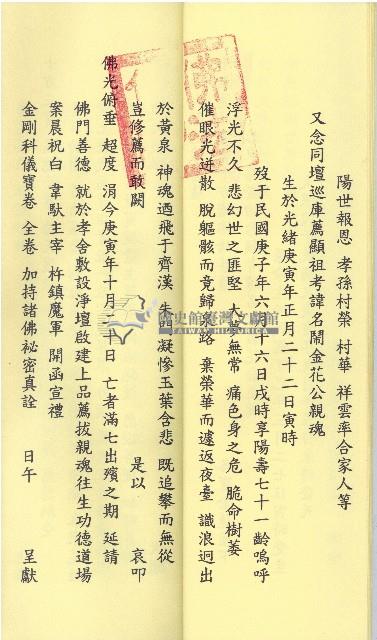 陽世報恩 孝孫村榮 村華 祥雲率合家人等
又念同壇巡庫薦顯祖考諱名鬧金花公親魂
生於光緒庚寅年正月二十二日寅時
歿于民國庚子年六月十六日戌時享陽壽七十一齡嗚呼
浮光不久 悲幻世之匪堅 大夢無常 痛色身之危 脆命樹萎
催眼光迸散 脫軀骸而竟歸泉路 棄榮華而遽返夜臺 識浪迥出
於黃泉 神魂迺飛于齊漢 本門凝慘玉葉含悲 既追攀而無從
豈修薦而敢闕 是以 哀叩
佛光俯垂 超度 涓今庚寅年十月二十日 亡者滿七出殯之期 延請
佛門善德 就於孝舍敷設淨壇啟建上品薦拔親魂往生功德道場
案晨祝白 韋馱主宰 杵鎮魔軍 開函宣禮
金剛科儀寶卷 全卷 加持諸佛祕密真詮 日午 呈獻
國史館臺灣文獻館
TAIWAN HISTORICA